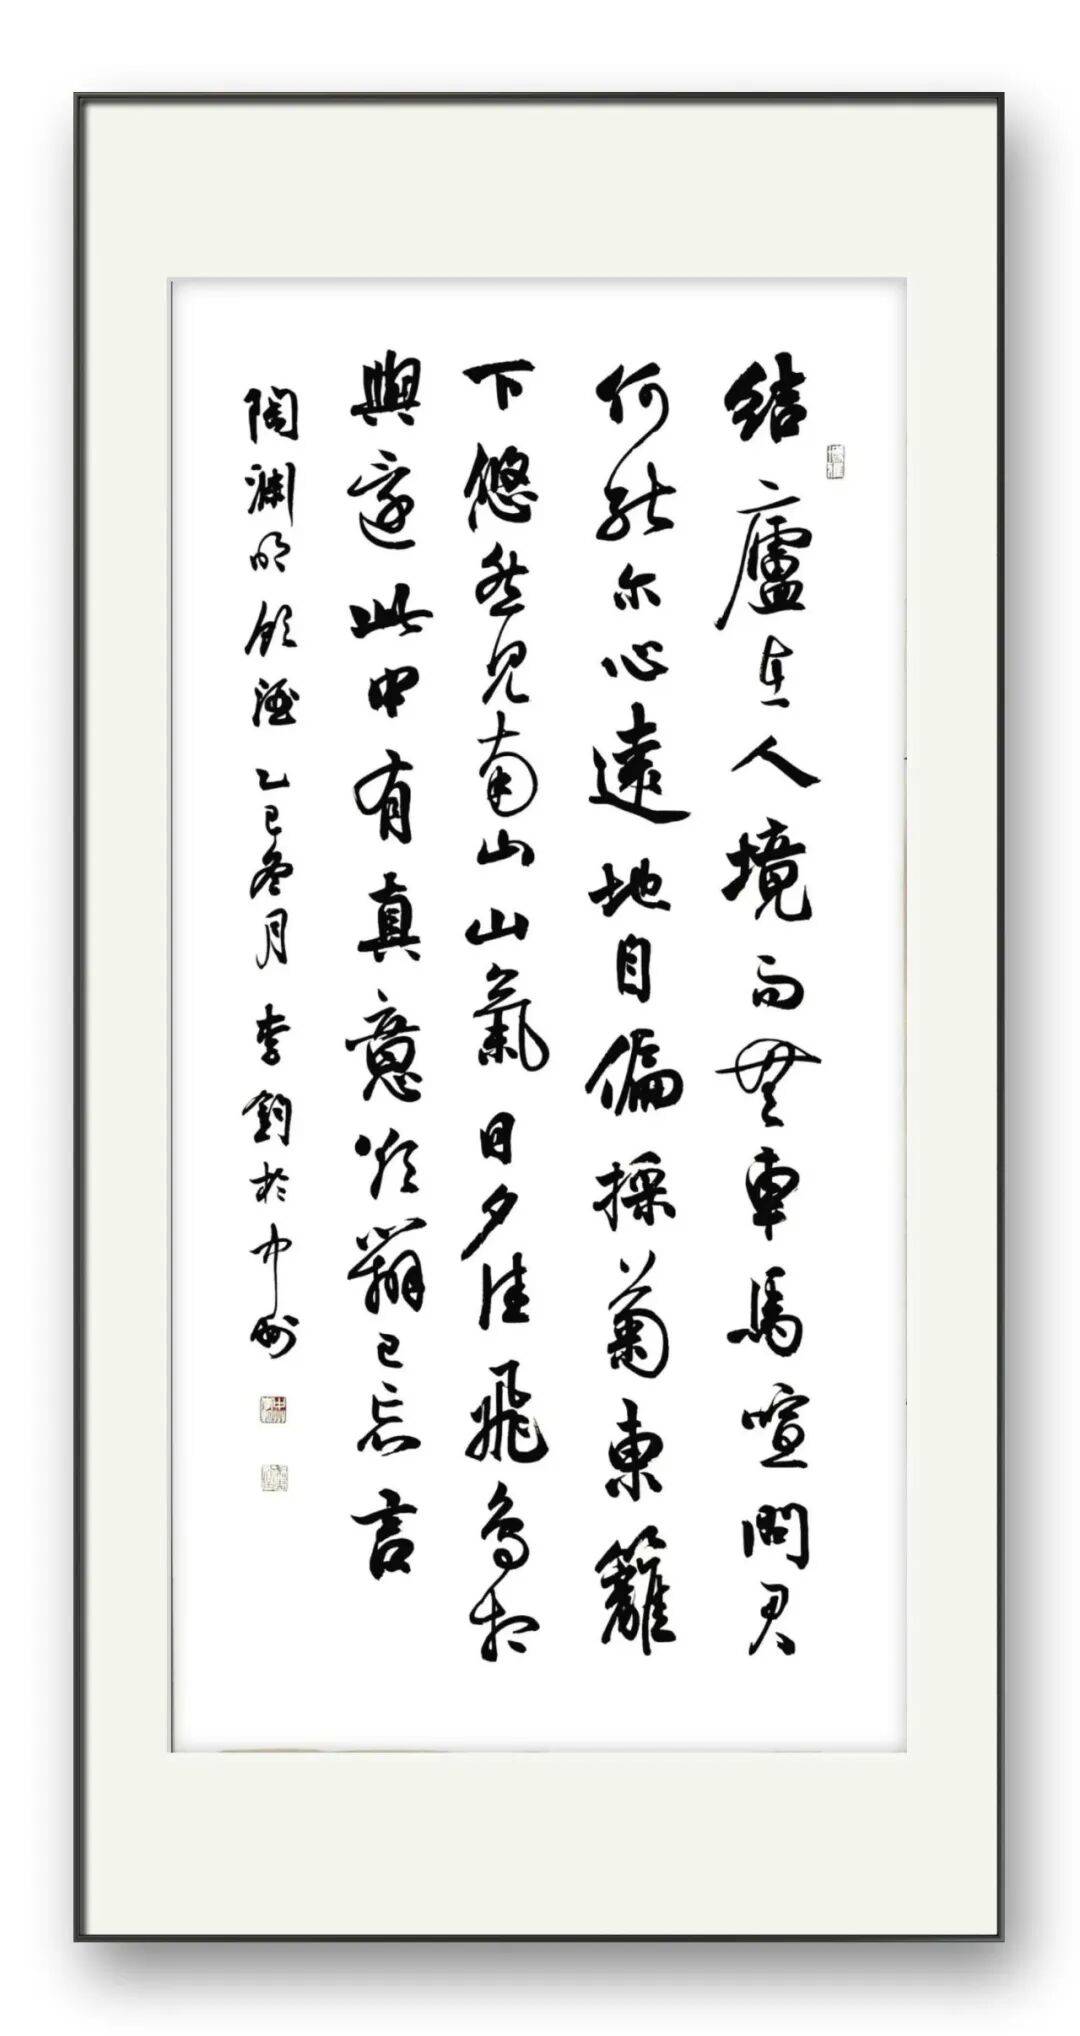 結廬在人境而無車馬喧問君
何能尔心遠地自偏採菊東籬
下悠然見南山山氣日夕佳飛鳥相
與還此中有真意欲辯已忘言
陶淵明飲酒 乙巳冬月 李鈞於中州